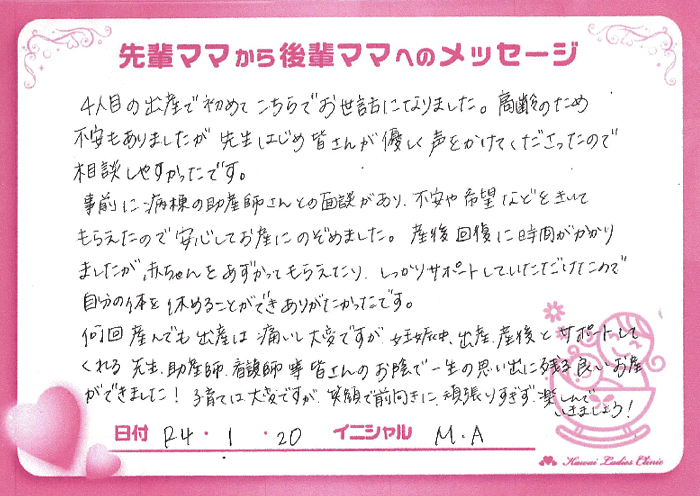 先輩ママから後輩ママへのメッセージ
4人目の出産で初めてこちらでお世話になりました。高齢のため
不安もありましたが先生はじめ皆さんが優しく声をかけてくださったので
相談しやすかったです。
事前に病棟の助産師さんとの面談があり、不安や希望などをきいて
もらえたので安心してお産にのぞめました。産後回復に時間がかかり
ましたが、赤ちゃんをあずかってもらえたり、しっかりサポートしていただけたので
自分の体を休めることができありがたかったです。
何回産んでも出産は痛いし大変ですが、妊娠中、出産、産後とサポートして
くれる先生、助産師、看護師等皆さんのお陰で一生の思い出に残る良いお産
ができました！子育ては大変ですが、笑顔で前向きに、頑張りすぎず、楽しんで
いきましょう！
日付 R4・1・20 イニシャル M.A
Kawai Ladies Clinic